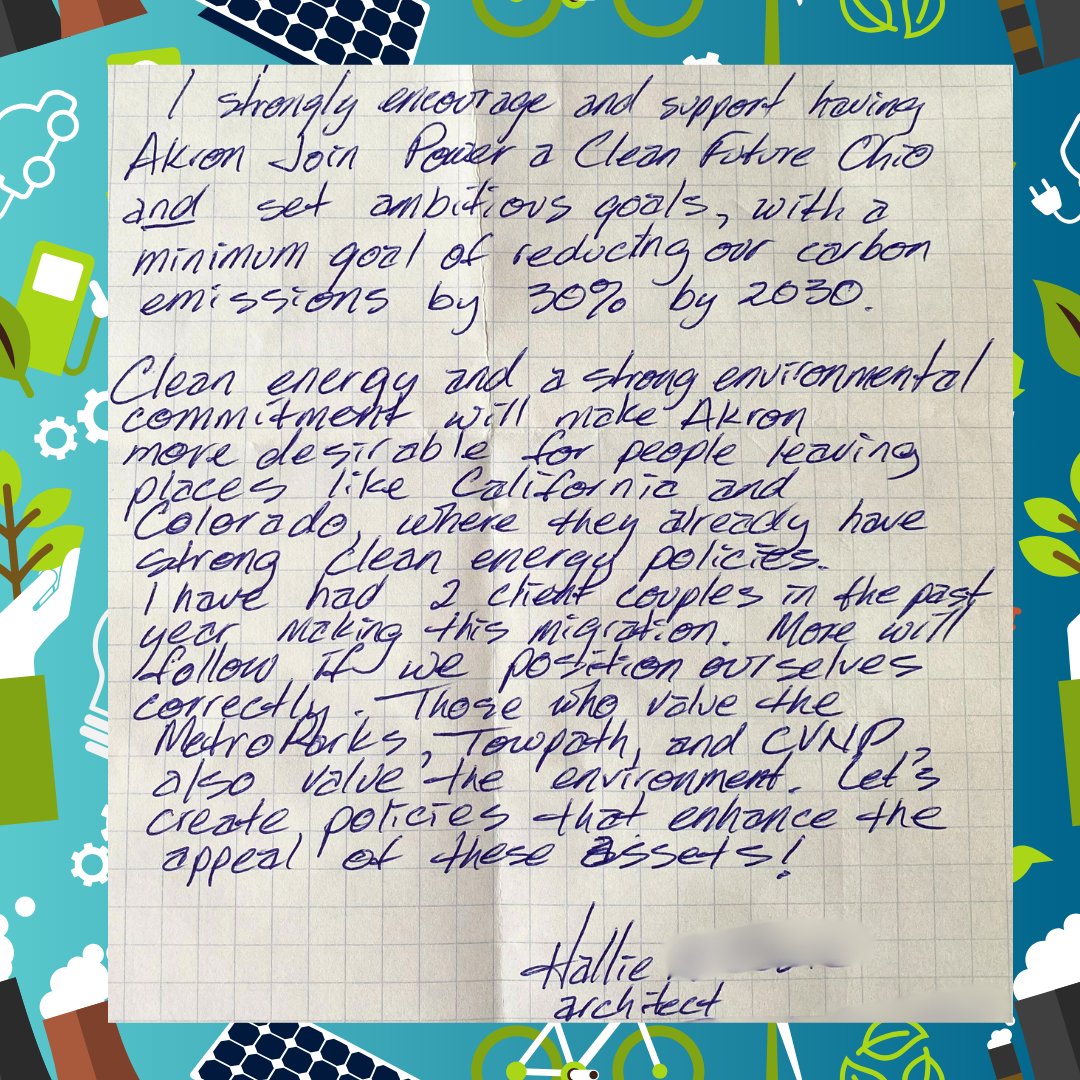 I strongly encourage and support having
Akron Join Power a Clean Future Ohio
and set ambitious goals, with a
minimum goal of reducing our carbon
emissions by 30% by 2030.
Clean energy and a strong environmental
commitment will make Akron
more desirable for people leaving
places like California and
Colorado, where they already have
strong clean energy policies.
I have had 2 client couples in the past
year making this migration. More will
follow if we position ourselves
correctly. Those who value the
MetroParks, Towpath, and CVNP,
also value the environment. Let's
create policies that enhance the
appeal of these assets!
Hallie
architect